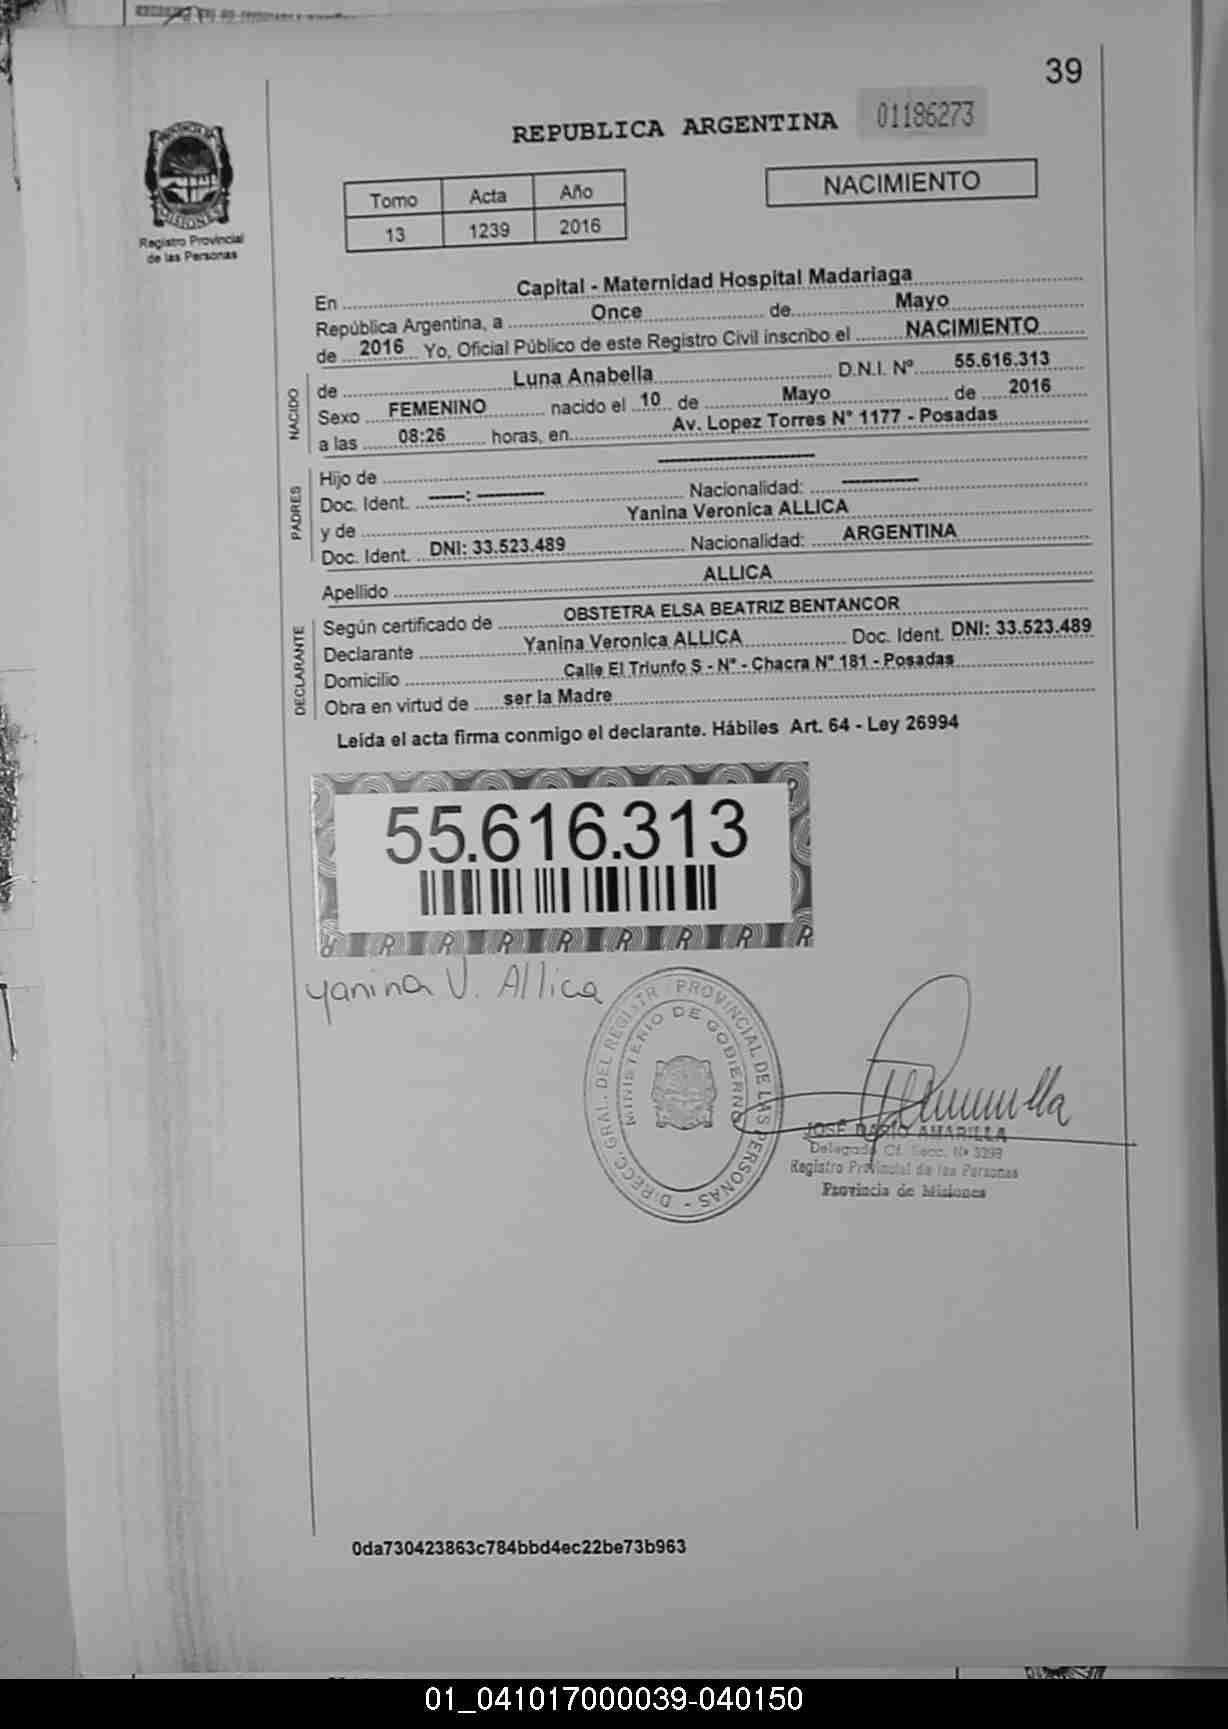 39
REPUBLICA ARGENTINA 01186273
PROVINCIA DE MISIONES
Registro Provincial
de las Personas
NACIMIENTO
Tomo Acta Año
13 1239 2016
En Capital - Maternidad Hospital Madariaga
República Argentina, a Once de Mayo
de 2016 Yo, Oficial Público de este Registro Civil inscribo el NACIMIENTO
NACIDO
de Luna Anabella D.N.I. Nº 55.616.313
Sexo FEMENINO nacido el 10 de Mayo de 2016
a las 08:26 horas, en Av. Lopez Torres N° 1177 - Posadas
PADRES
Hijo de ----------
Doc. Ident. -----: ---------- Nacionalidad: ----------
y de Yanina Veronica ALLICA
Doc. Ident. DNI: 33.523.489 Nacionalidad: ARGENTINA
Apellido ALLICA
DECLARANTE
Según certificado de OBSTETRA ELSA BEATRIZ BENTANCOR
Declarante Yanina Veronica ALLICA Doc. Ident. DNI: 33.523.489
Domicilio Calle El Triunfo S - N° - Chacra N° 181 - Posadas
Obra en virtud de ser la Madre
Leída el acta firma conmigo el declarante. Hábiles Art. 64 - Ley 26994
55.616.313
R R R R R R R R R
Yanina V. Allica
DIRECC. GRAL. DEL REGISTR PROVINCIAL DE LAS PERSONAS -
MINISTERIO DE GOBIERNO
JOSÉ DARIO AMARILLA
Delegado Cf. Secc. Nº 3398
Registro Provincial de las Personas
Provincia de Misiones
0da730423863c784bbd4ec22be73b963
01_041017000039-040150